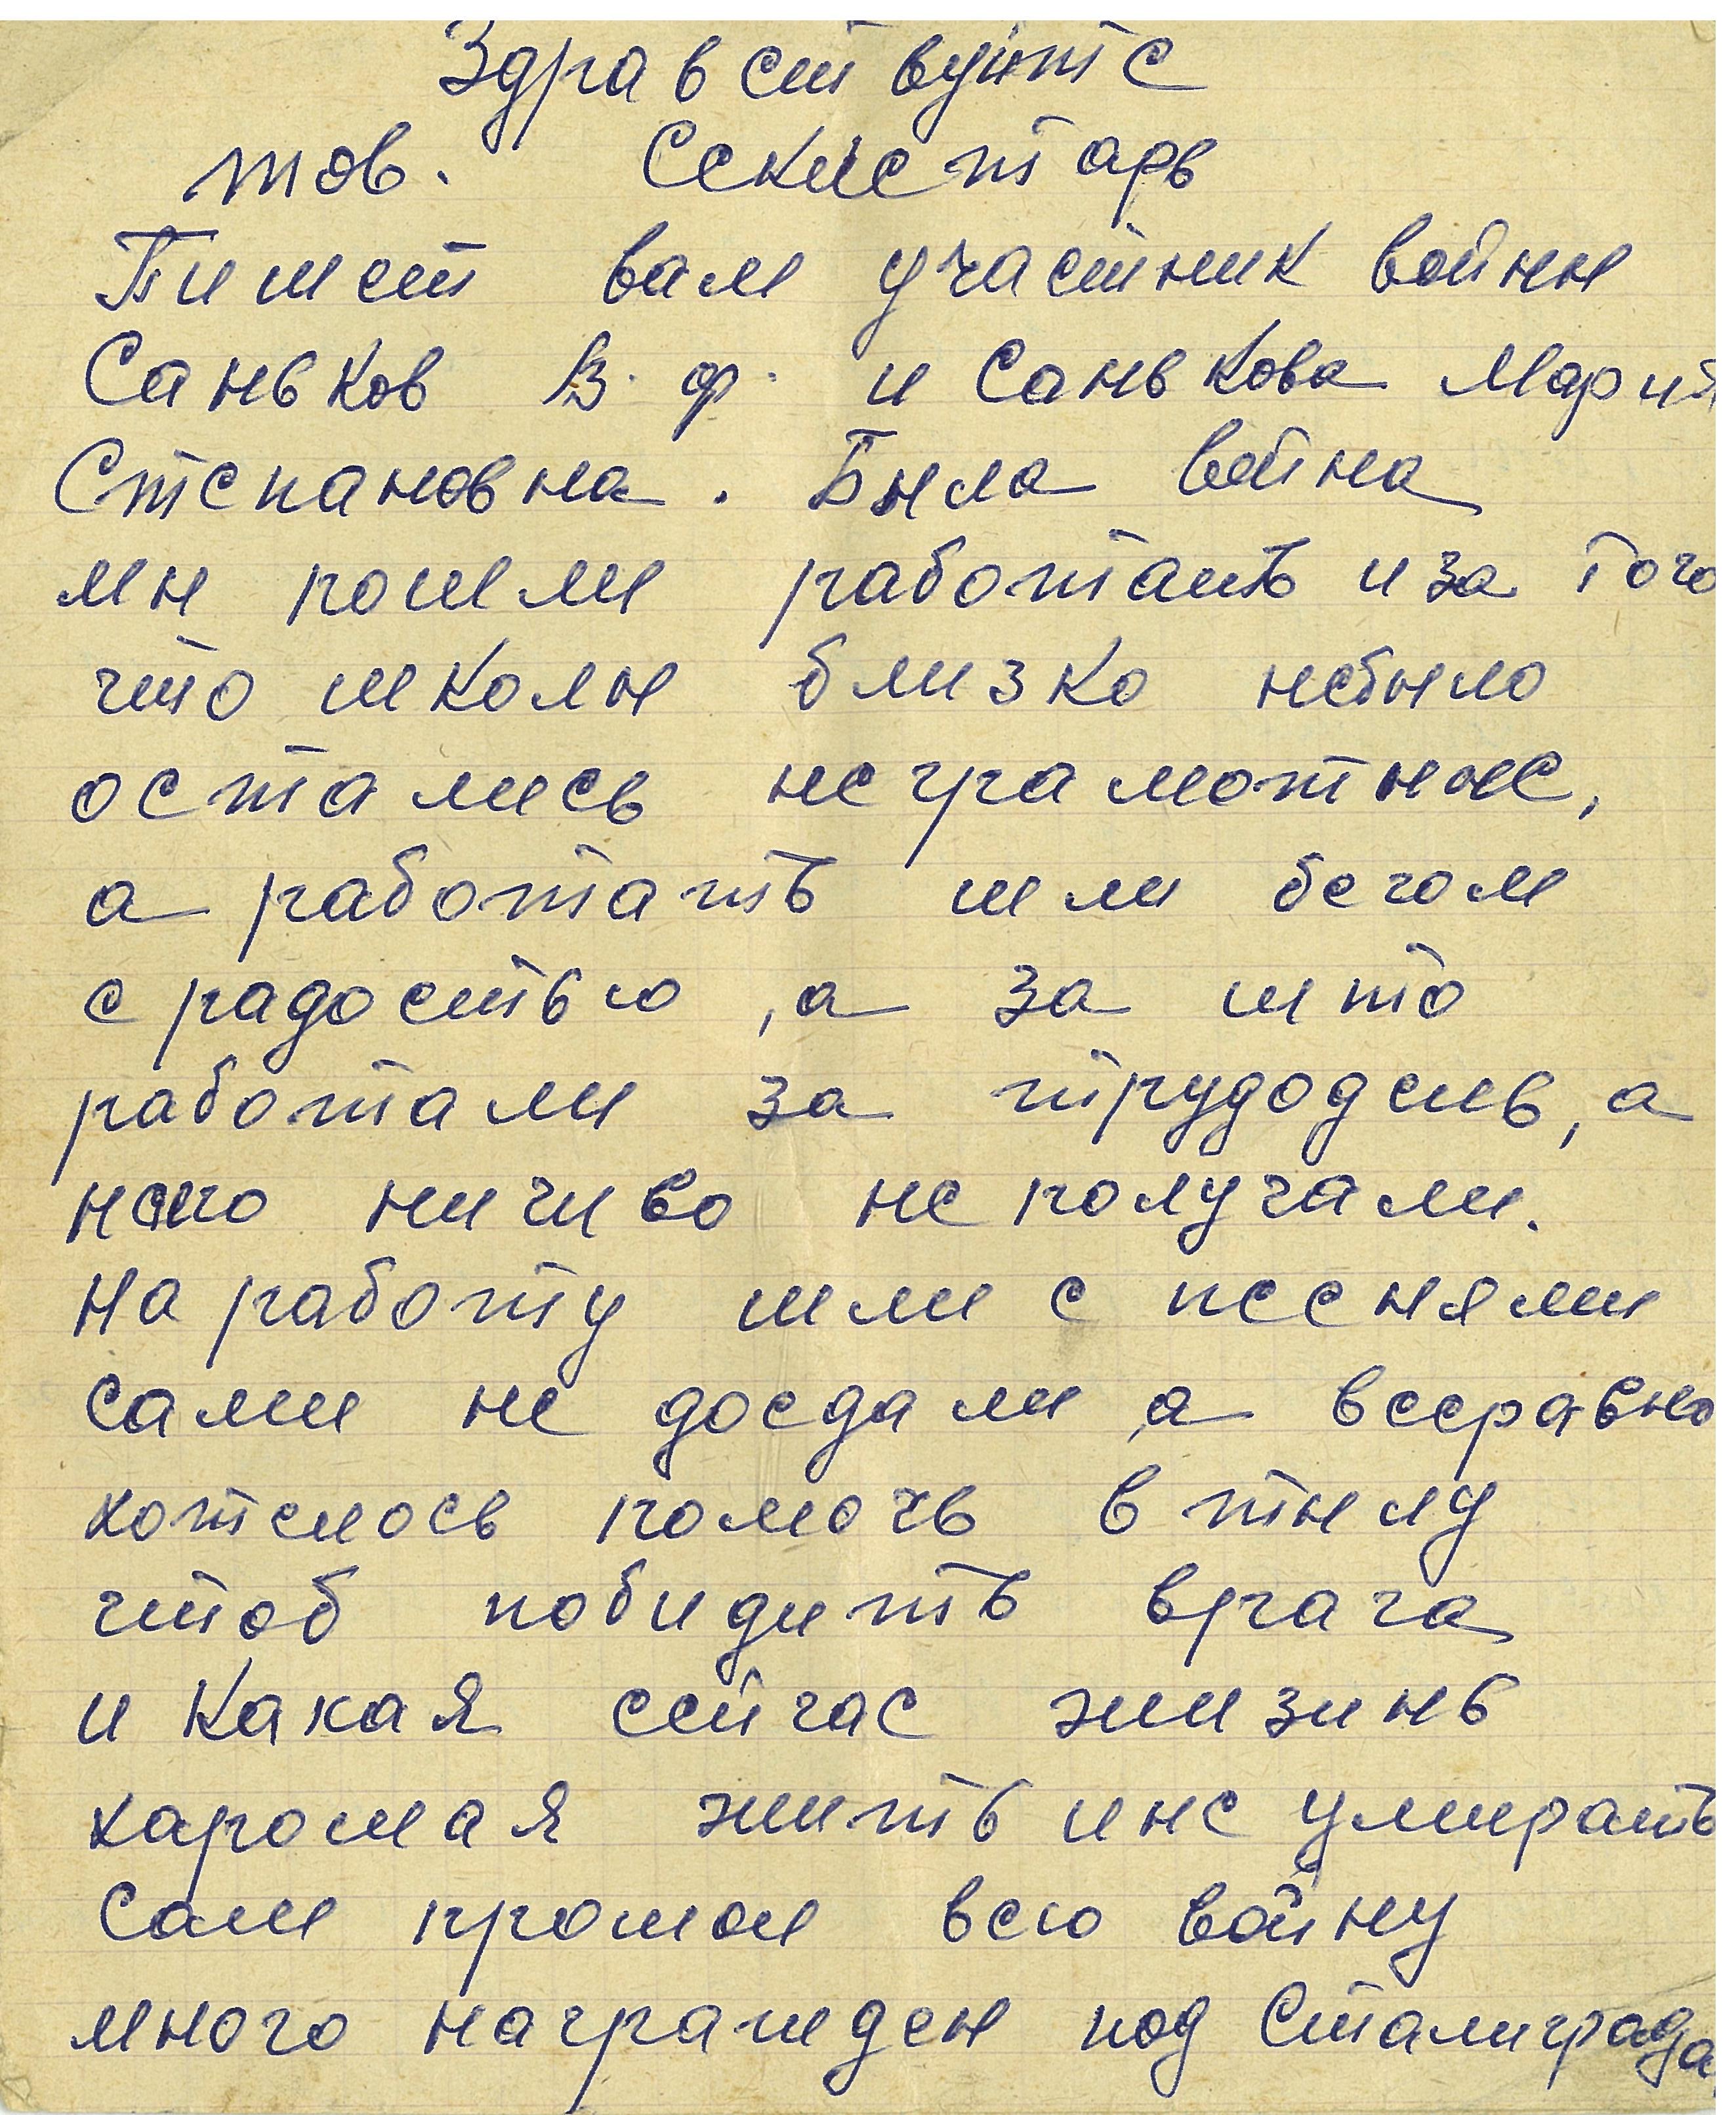 Здравствуйте
тов. Секретарь
Пишет вам участник войны
Саньков В. Ф. и Санькова Мария
Степановна. Была война
мы пошли работать иза того
что школы близко небыло
остались неграмотные,
а работать шли бегом
с радостью, а за што
работали за трудодень, а
ничиво не получали.
На работу шли с песнями
сами не доедали, а всеравно
хотелось помочь в тылу
чтоб побидить врага
и какая сейчас жизинь
харошая жить ине умирать
Сам прошол всю войну
много награжден под Сталиграда